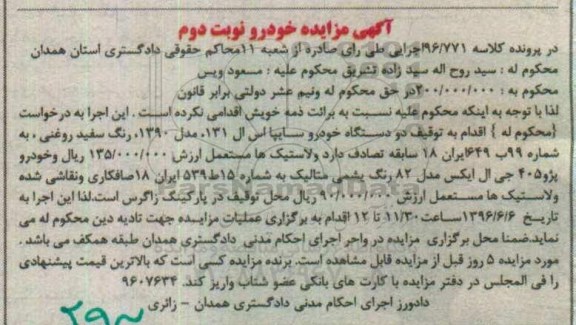 آگهی مزایده خودرو نوبت دوم
در پرونده کلاسه ۹۶/۷۷۱اجرایی طی رای صادره از شعبه ۱۱محاکم حقوقی دادگستری استان همدان
محکوم له : سید روح اله سید زاده تشریق محکوم علیه : مسعود ویس
محکوم به : ۲۰۰/۰۰۰/۰۰۰در حق محکوم له ونیم عشر دولتی برابر قانون
لذا با توجه به اینکه محکوم علیه نسبت به برائت ذمه خویش اقدامی نکرده است . این اجرا به درخواست
{محکوم له } اقدام به توقیف دو دستگاه خودرو سایپا اس ال ۱۳۱، مدل ۱۳۹۰، رنگ سفید روغنی ، به
شماره ۹۹ب ۶۴۹ایران ۱۸ سابقه تصادف دارد ولاستیک ها مستعمل ارزش ۱۳۵/۰۰۰/۰۰۰ ریال وخودرو
پژو۴۰۵ جی ال ایکس مدل ۸۲ رنگ یشمی متالیک به شماره ۱۵ط۵۳۹ ایران ۱۸صافکاری ونقاشی شده
ولاستیک ها مستعمل ارزش ۹۰/۰۰۰/۰۰۰ ریال محل توقیف در پارکینگ زاگرس است.لذا این اجرا به
تاریخ ۱۳۹۶/۶/۶ساعت ۱۱/۳۰ تا ۱۲ اقدام به برگزاری عملیات مزایده جهت تادیه دین محکوم له می
نماید.ضمنا محل برگزاری مزایده در واحر اجرای احکام مدنی دادگستری همدان طبقه همکف می باشد .
مورد مزایده ۵ روز قبل از مزایده قابل مشاهده است. برنده مزایده کسی است که بالاترین قیمت پیشنهادی
را فی المجلس در دفتر مزایده با کارت های بانکی عضو شتاب واریز کند. ۹۶۰۷۶۳۴
دادورز اجرای احکام مدنی دادگستری همدان - زائری
ParsNamadData